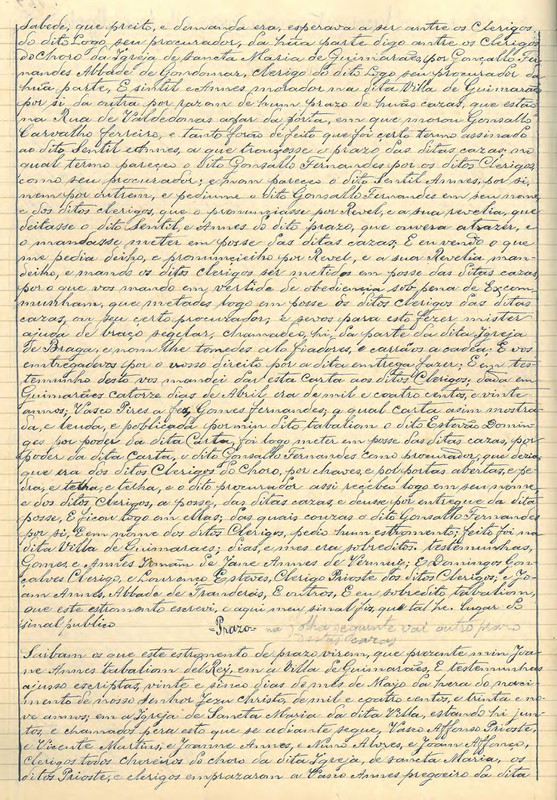 Sabede, que preito, e demanda era, esperava a ser antre os Clerigos
do dito Logo, seu procurador, da hũa parte digo antre os Clerigos
do Choro da Igreja de Sancta Maria de Guimarães, por Gonçallo Fer-
nandes Abbade de Gondomar, Clerigo do dito Logo seu procurador da
hũa parte, E Sintil e Annes morador na dita Villa de Guimarães
por si, da outra por razom de hum prazo de huãs cazas, que estão
na Rua de Valdedonas a par da porta, em que morou Gonsallo
Carvalho Ferreiro, e tanto forão de feito que foi certo termo assinado
ao dito Sentil e Annes, a que trouxesse o prazo das ditas cazas, no
qual termo pareceo o dito Gonsallo Fernandes por os ditos Clerigos,
como seu procurador, e nom pareceo o dito Sentil Annes, por si,
nem por outrem, e pediume o dito Gonsallo Fernandes em seu nome,
e dos ditos clerigos, que o pronunciasse por Revel, e a sua revelia, que
deitasse o dito Sentil, e Annes do dito prazo, que ouvera atrazer, e
o mandasse meter em posse das ditas cazas; E eu vendo o que
me pedia deiho, e pronuncieiho por Revel, e a sua Revelia man-
deiho, e mando os ditos clerigos ser metidos em posse das ditas cazas,
por o que vos mando em vertude de obediencia, sob pena de Excom-
munham, que metades logo em posse os ditos Clerigos das ditas
cazas, ou seu certo procurador, e sevos para esto fezer mister
ajuda de braço segelar, chamadeo, hi, da parte da dita Igreja
de Braga, e nom lhe tomedes alo fiadores, e carrãos a cadea; E vos
entregadevos por o vosso direito por a dita entrega fazer; E em tes-
temunho desto vos mandei dar esta carta aos ditos Clerigos; dada em
Guimarães Catorze dias de Abril, era de mil e coatro centos, e vinte
annos; Vasco Pires a fez, Gomes Fernandes; a qual carta asim mostra-
da, e leuda, e poblicada por min dito tabaliom o dito Estevão Domin-
ges por poder da dita Carta, foi logo meter em posse das ditas cazas, por
poder da dita Carta, o dito Gonsallo Fernandes como procurador, que dezia
que era dos ditos Clerigos do Choro, por chaves, e por portas abertas, e pe-
dra, e telha, e o dito procurador assi recebeo logo em seu nome,
e dos ditos Clerigos, a posse, das ditas cazas, e deuse por entregue da dita
posse, E ficou logo em ellas; das quais couzas o dito Gonsallo Fernandes
por si, E em nome dos ditos Clerigos, pedio hum estromento; feito foi na
dita Villa de Guimaraes; dias, e mes era sobreditos. testemunhas,
Gomes, e Annes Homam de Jane Annes de Vermil; E Domingos Gon-
çalves Clerigo, e Lourenço Esteves, Clerigo Prioste dos ditos Clerigos; e Jo-
am Annes, Abbade de Tranderás, E outros, E eu sobredito tabaliom,
que este estromento escrevi, e aqui meu sinal fiz, que tal he. Lugar do
sinal publico
=Prazo= na folha seguinte vai outro prazo
destas cazas
Saibam os que este estromento de prazo virem, que prezente mim Joa-
ne Annes tabaliom del Rey, em a Villa de Guimarães, E testemunhas
ajuso escriptas, vinte e sinco dias do mês de Mayo da hera do naci-
mento de nosso Senhor Jezu Christo, de mil e coatro centos, e trinta e no-
ve annos; em a Igreja de Sancta Maria da dita Villa, estando hi jun-
tos, e chamados pera esto que se adiante segue, Vasco Affonso Prioste,
e Vicente Martins, e Joanne Annes, e Nuno Alvres, e Joam Affonço,
Clerigos todos choreiros do choro da dita Igreja, de sancta Maria, os
ditos Prioste, e clerigos emprazaram a Vasco Annes pregoeiro da dita